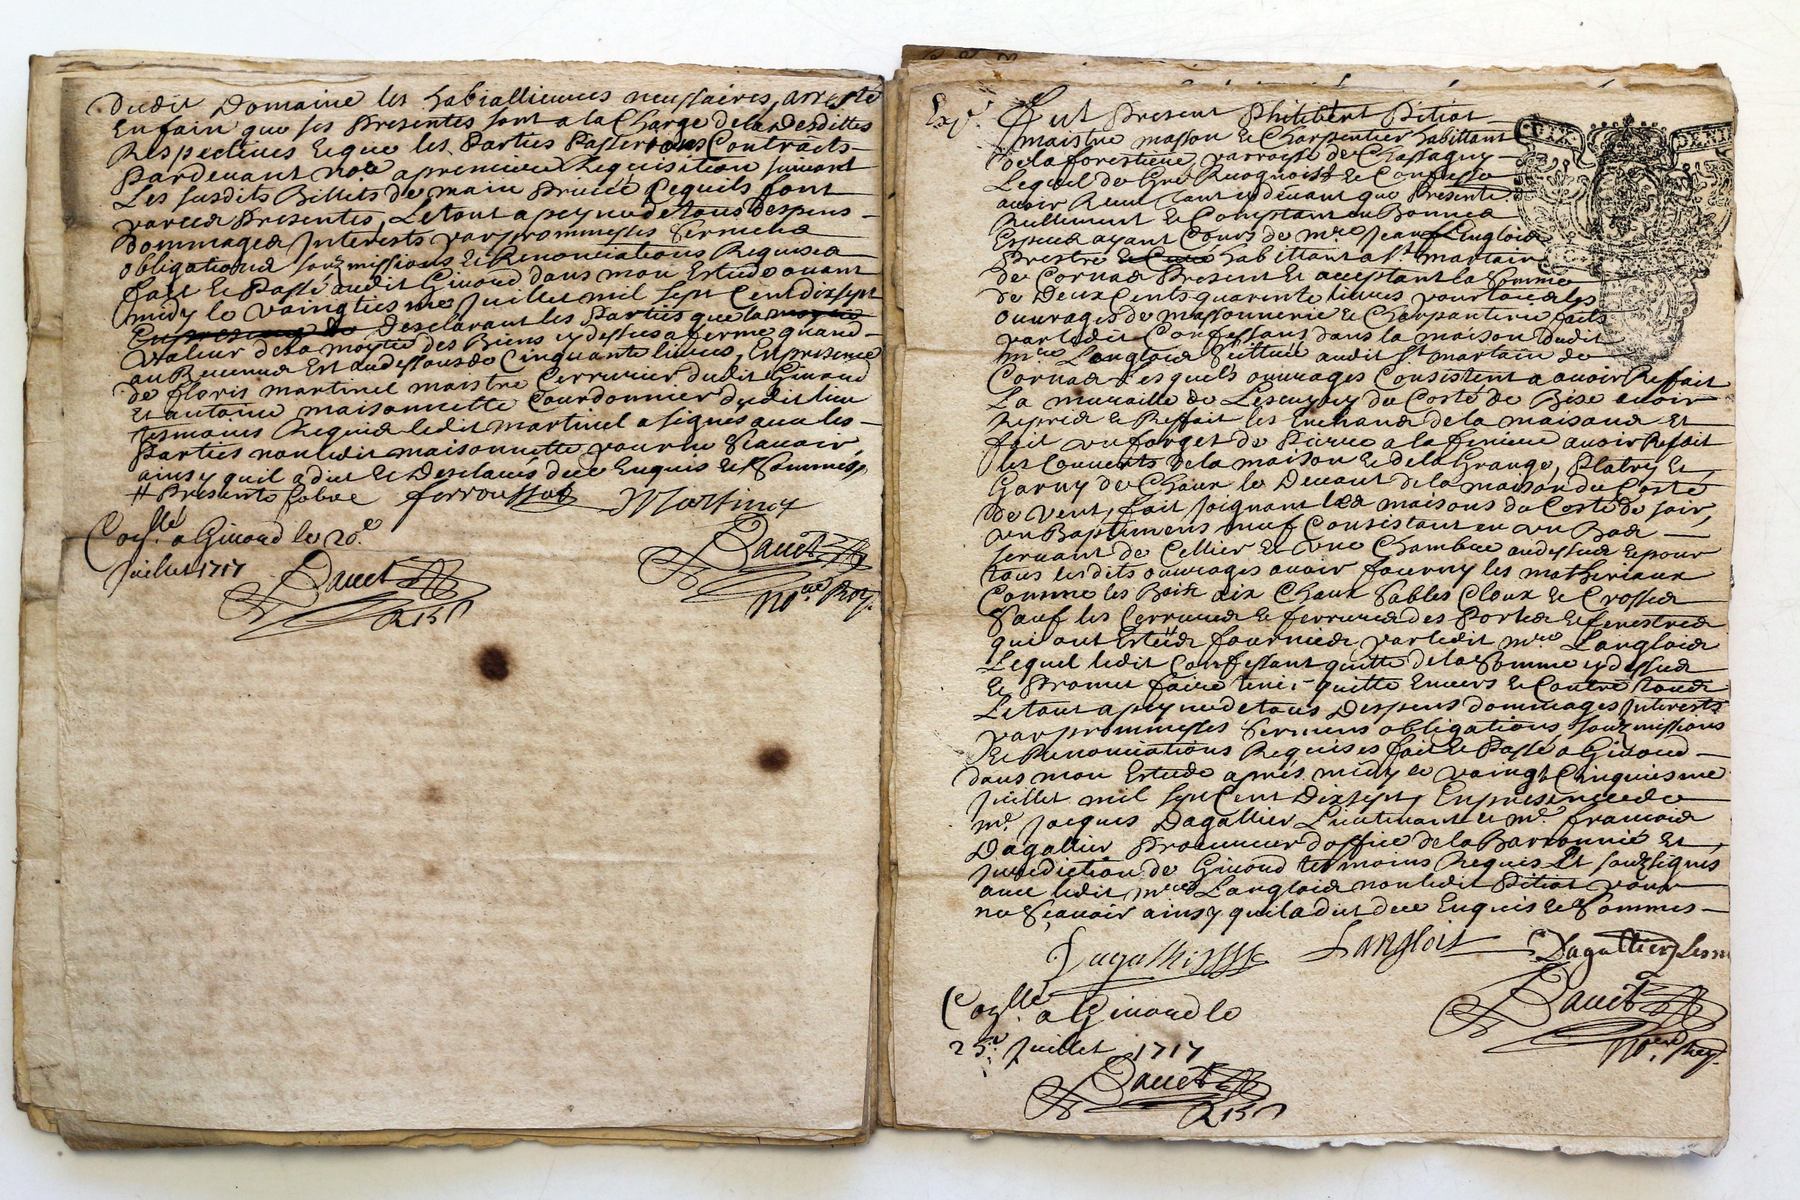 dudit Domaine les habialliennes neussaires, arresté
En fain que ses Presentes sont a la Charge de la Desdittes
Respectives Et que les Parties Passeront Contracts
Pardevant no.e a premiere Requisition suivant
Les susdits Billets de main Privée Cequils font
par ces Presentes, Le tout a peyne de tous despens
Dommages Interests par prommesses serments
obligations souzmissions Et Renonciations Requises
fait Et Passé audit Givord dans mon Estude avant
midy le vaingtiesme Juillet mil sept Cent dixsept
Desclarant les Parties que la
valeur de la moytie des Biens cydessus afferme quand
au Revenus Est audessous de Cinquante livres, En presence
de floris martinel maistre Cerrurier dudit Givord
Et antoine maisonnette Courdonnier dudit lieu
tesmoins Requis ledit martinel a signes avec les
Parties non ledit maisonnette pour ne Scavoir
ainsy quil a dit Et Desclarés de ce Enquis Et Sommés
# Presente
Martinel
Con.llé a Givord le 20.e
Juillet 1717
Dauet
No.re Roy.
Dauet
R 15 s
Exp.
fut Present Philibert Pitiot
maistre masson Et Charpentier habittant
de la forestiere, parroisse de Chassagny
Lequel de Gré Recognoist Et Confesse
avoir Receu tant cydevant que Presente
Reellement Et Comptant en Bonnes
Especes ayant Cours de m.re Jean Langlois
Prestre habittant a S.t martain
de Cornas Present Et acceptant la Somme
de Deux Cents quarente livres pour tous les
ouvrages de massonnerie Et Charpanterie faits
par ledit Confessant dans la maison dudit
m.re Langlois scittuée audit S.t martain de
Cornas Lesquels ouvrages Consistent a avoir Reffait
La muraille de Lescuyry du Costé de Bise avoir
Repris Et Reffait les Enchans de la maison Et
fait un forget de Pierre a la feniere avoir Refait
les Couverts de la maison Et de la Grange, Platry Et
Garny de Chaux le Devant de la maison du Costé
de vent, fait Joignant les maisons du Costé de soir,
un Baptiment neuf Consistant en un Bas
servant de Cellier Et une Chambre audessus Et pour
tous lesdits ouvrages avoir fourny les matheriaux
Comme les Bois aix Chaux Sables Cloux Et Crosses
Sauf les Cerrures Et ferrures des Portes Et fenestres
qui ont Estéés fournies par ledit m.re Langlois
Lequel ledit Confessant quitte de la Somme cydessus
Et Promet faire tenir quitte Envers Et Contre tous
Le tout a peyne de tous Despens dommages Interests
par prommesses Sermens obligations souzmissions
Et Renonciations Requises fait Et Passé a Givord
dans mon Estude aprés midy le vaingt Cinquiesme
Juillet mil sept Cent Dixsept, En presence de
m.e Jacques Dagallier Lieutenant Et m.e francois
Dagallier Procureur doffice de la Barronnie Et
Jurediction de Givord tesmoins Requis Et souzsignes
avec ledit m.re Langlois non ledit Pitiot pour
ne Scavoir ainsy quil a dit de ce Enquis Et Sommés
Dagallier
Langlois
Dagallier
Con.llé a Givord le
25.e Juillet 1717
Dauet
No.re Roy.
Dauet
R 15 s